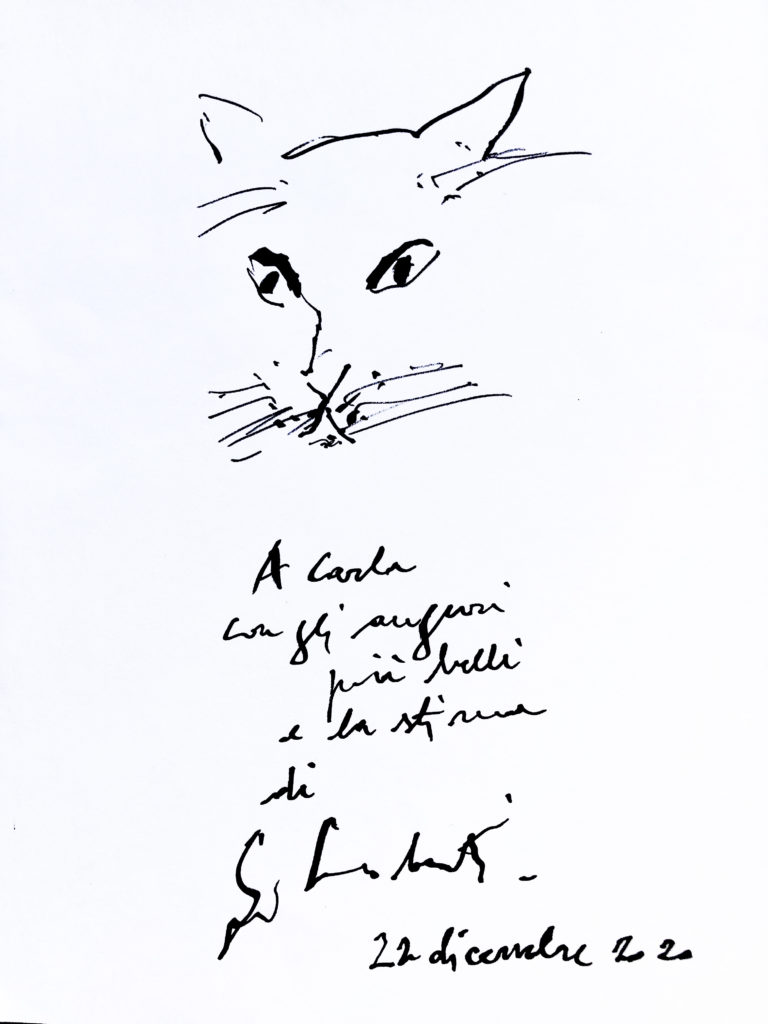 A Carla
con gli auguri
più belli
e la stima
di
22 dicembre 2020